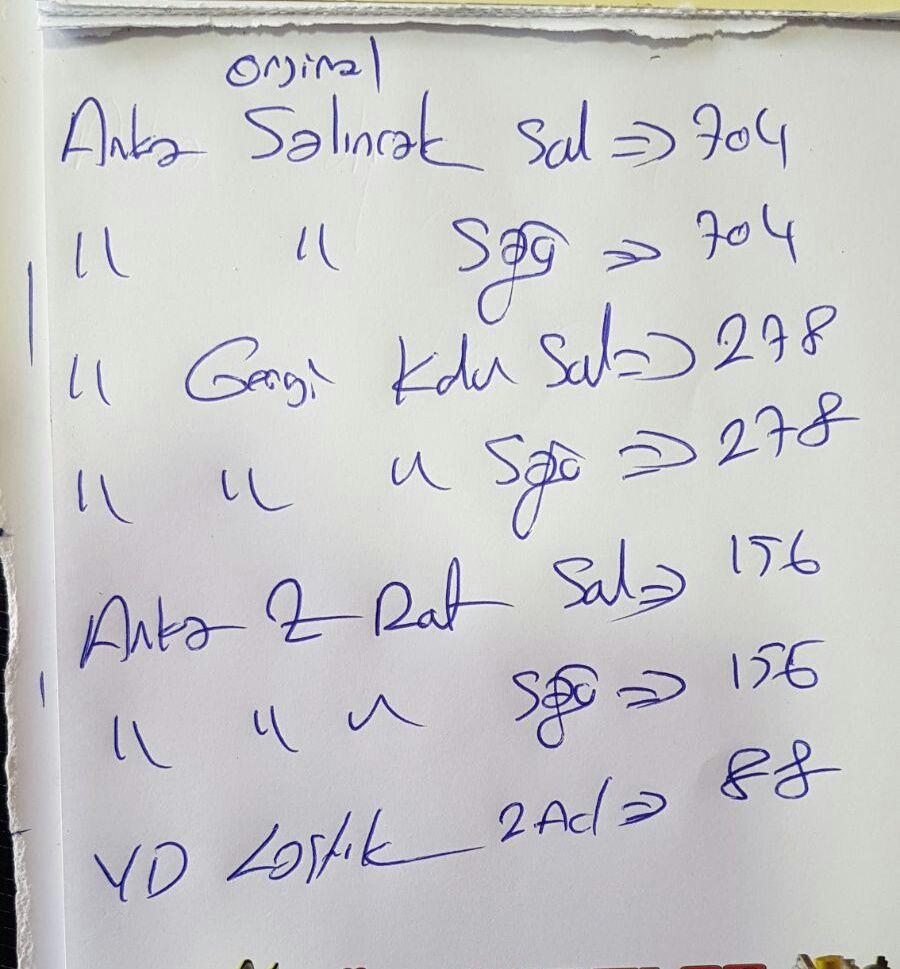 Orjinal
Arka Salıncak Sol => 704
" " Sağ => 704
" Gergi Kolu Sol => 278
" " " Sağ => 278
Arka Z Rot Sol => 156
" " " Sağ => 156
YD Lastik 2 Ad => 88